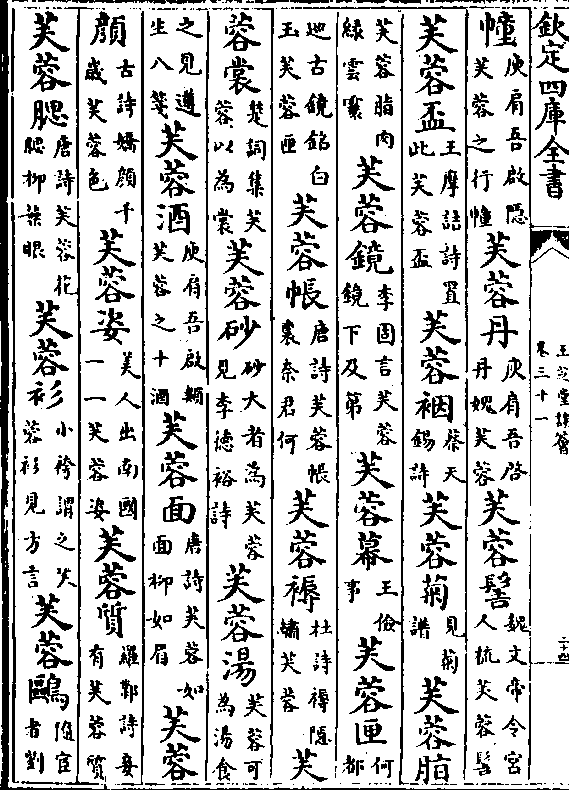 欽定四庫全書
玉芝堂談薈
卷三十一
二十四
幢庾肩吾啟隠芙蓉之行幢芙蓉丹庾肩吾啓丹媿芙蓉芙蓉髻魏文帝令宮人梳芙蓉髻
芙蓉盃王摩詰詩置此芙蓉盃芙蓉裀蔡天錫詩芙蓉菊見菊譜芙蓉脂
芙蓉脂肉緑雲鬟芙蓉鏡李固言芙蓉鏡下及第芙蓉幕王儉事芙蓉匣何都
地古鏡銘白玉芙蓉匣芙蓉帳唐詩芙蓉帳裏奈君何芙蓉褥杜詩褥隠繡芙蓉芙
蓉裳楚詞集芙蓉以為裳芙蓉砂砂大者為芙蓉見李德裕詩芙蓉湯芙蓉可為湯食
之見遵生八箋芙蓉酒庾肩吾啟類芙蓉之十酒芙蓉面唐詩芙蓉如面柳如眉芙蓉
顔古詩嬌顔千歲芙蓉色芙蓉姿美人出南國一一芙蓉姿芙蓉質羅鄴詩妾有芙蓉質
芙蓉腮唐詩芙蓉花腮柳葉眼芙蓉衫小袴謂之芙蓉衫見方言芙蓉鷗宦者劉